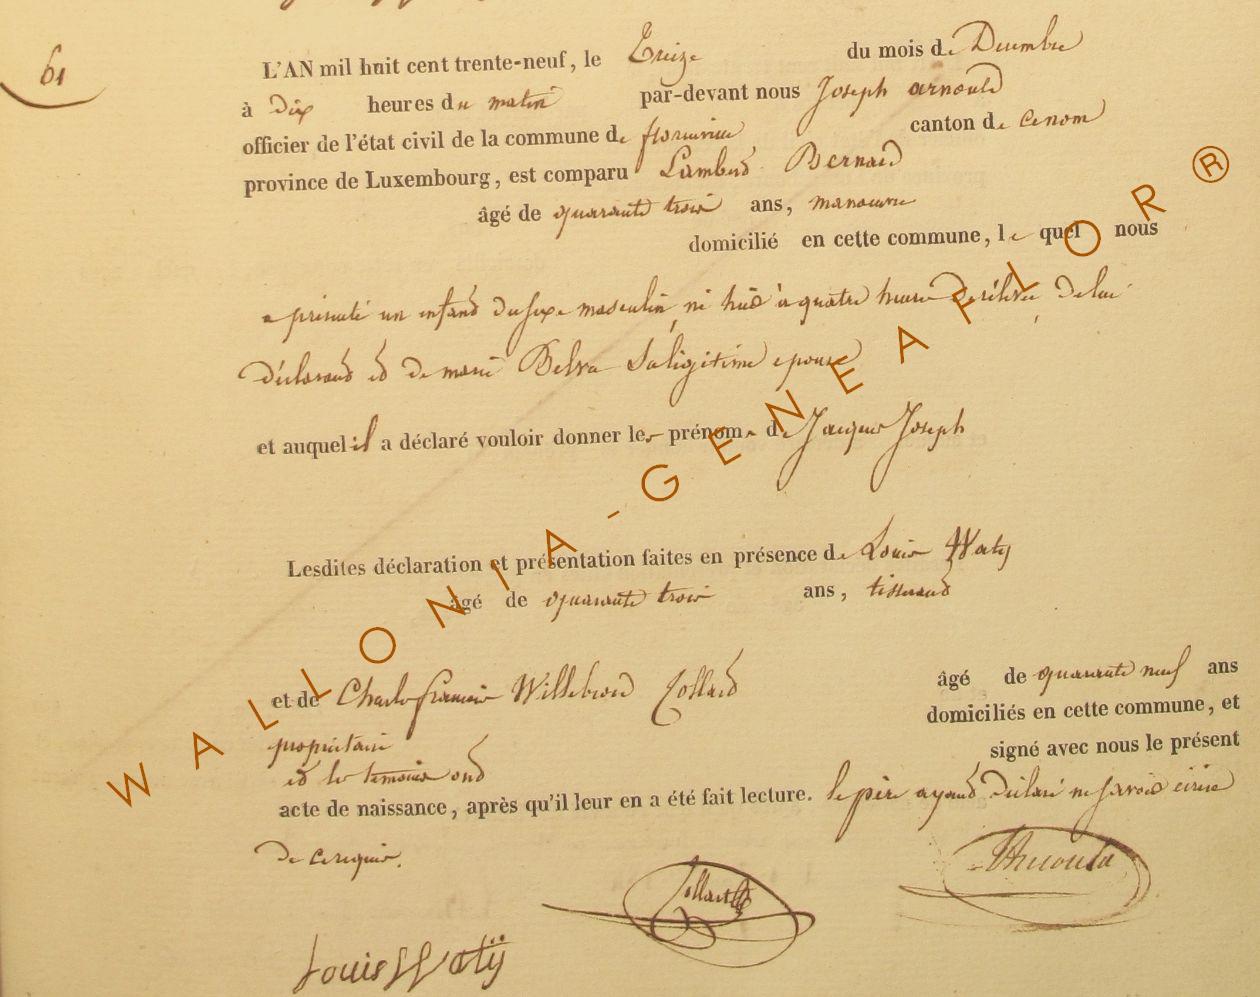 61
L'AN mil huit cent trente-neuf, le Treize du mois de Decembre
à dix heures du matin par-devant nous Joseph arnould
officier de l'état civil de la commune de florenville canton de
province de Luxembourg, est comparu Lambert Bernard
âgé de quarante trois ans, manœuvre
domicilié en cette commune, le quel nous
a présenté un enfant du sexe masculin, né hier à quatre heures de relevée, de lui
déclarant et de marie Belva sa légitime epouse
et auquel il a déclaré vouloir donner les prénoms de Jacques Joseph
Lesdites déclaration et présentation faites en présence de Louis Watij
âgé de quarante trois ans, tisserand
et de Charles françois Willebrord Collard âgé de quarante neuf ans
propriétaire domiciliés en cette commune, et
et les temoins ont signé avec nous le présent
acte de naissance, après qu'il leur en a été fait lecture. le père ayant déclaré ne savoir écrire
de ce requis.
Collard
Arnould
Louis Watij
WALLONIA-GENEAFLOR ®